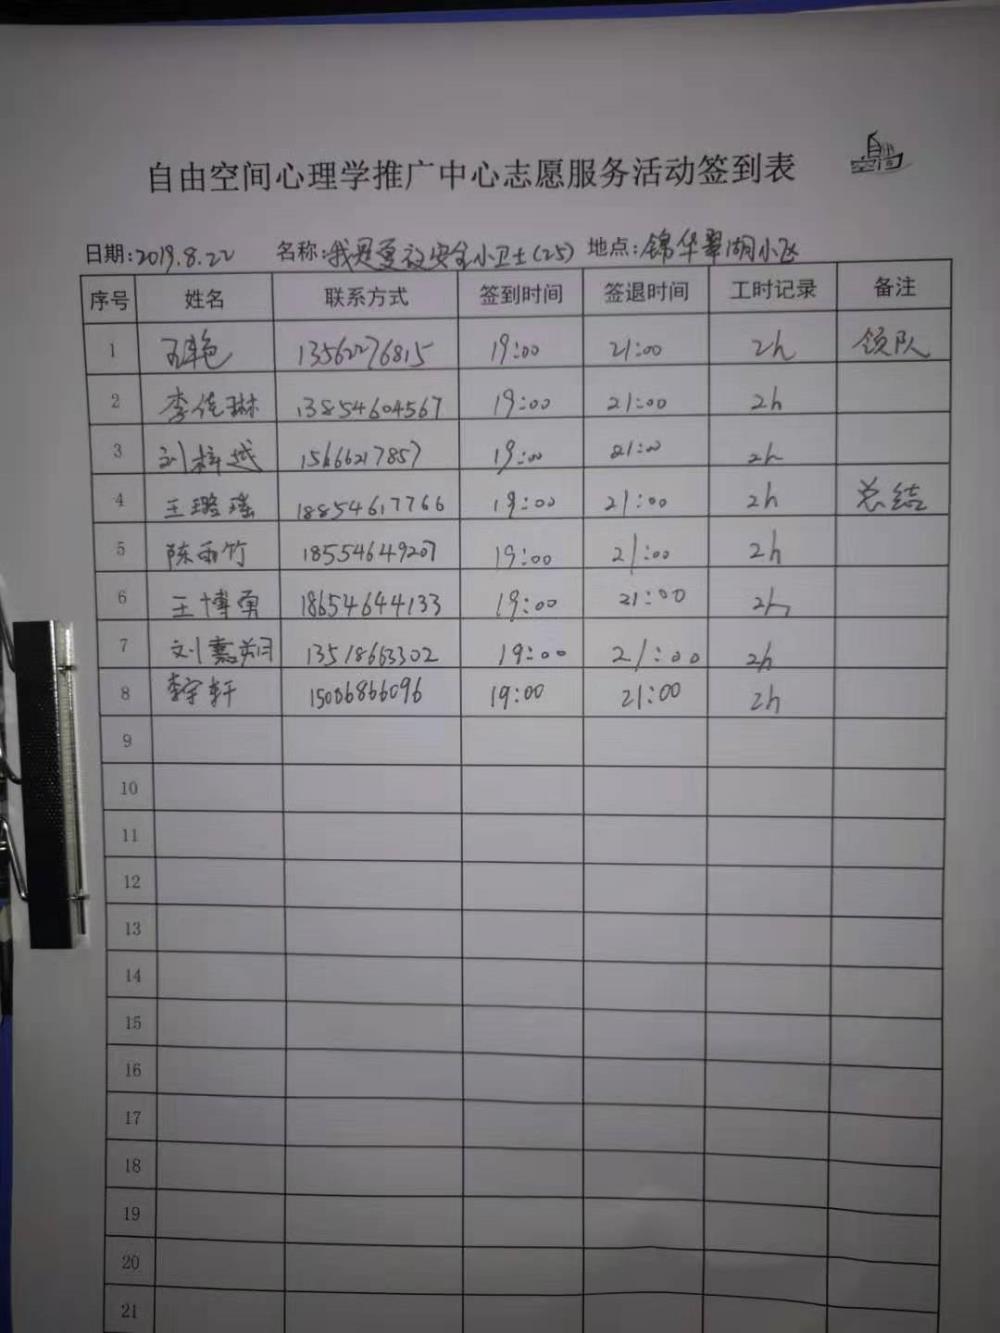 自由空间心理学推广中心志愿服务活动签到表
日期:2019.8.22 名称:我是夏议安全小卫士(25) 地点:锦华翠湖小区
序号 姓名 联系方式 签到时间 签退时间 工时记录 备注
1 13562276815 19:00 21:00 2h 领队
2 李佳琳 13854604567 19:00 21:00 2h
3 刘梓越 15666217857 19:00 21:00 2h
4 王璐瑶 18854617766 19:00 21:00 2h 总结
5 陈雨竹 18554649207 19:00 21:00 2h
6 王博勇 18654644133 19:00 21:00 2h
7 刘嘉翔 13518663302 19:00 21:00 2h
8 李宇轩 15006866096 19:00 21:00 2h
9
10
11
12
13
14
15
16
17
18
19
20
21